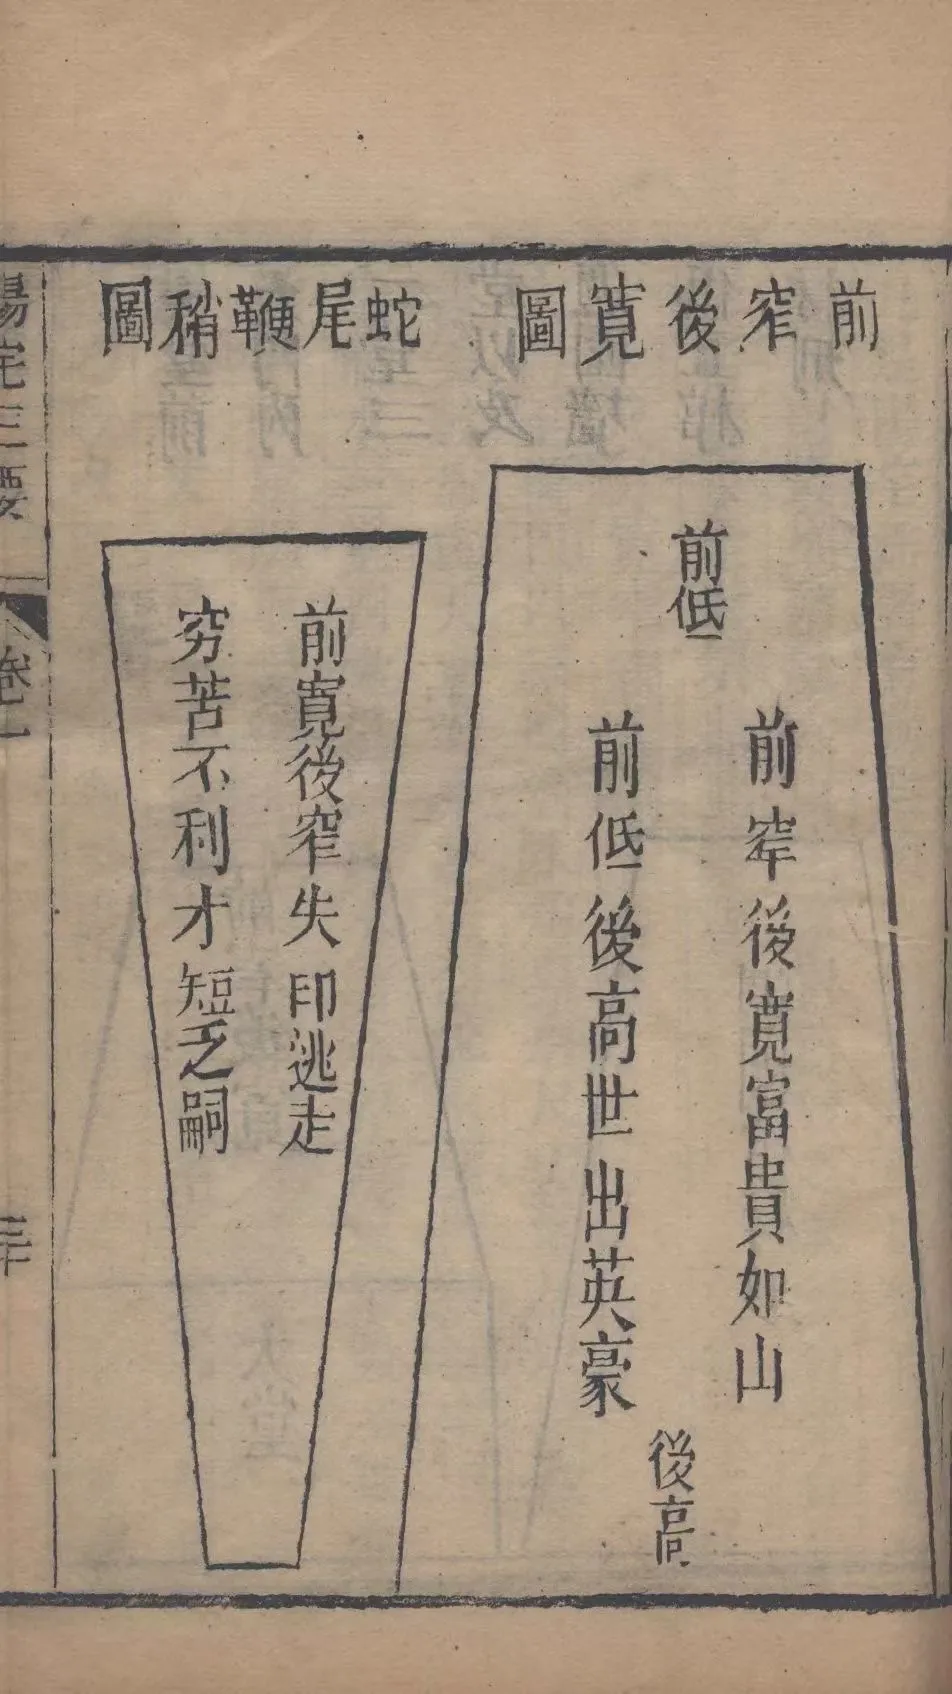 前窄後寬圖
前低
前窄後寬富貴如山
前低後高世出英豪
後高
蛇尾鞭稍圖
前寬後窄失印逃走
窮苦不利才短乏嗣
陽宅三要
卷一
三十